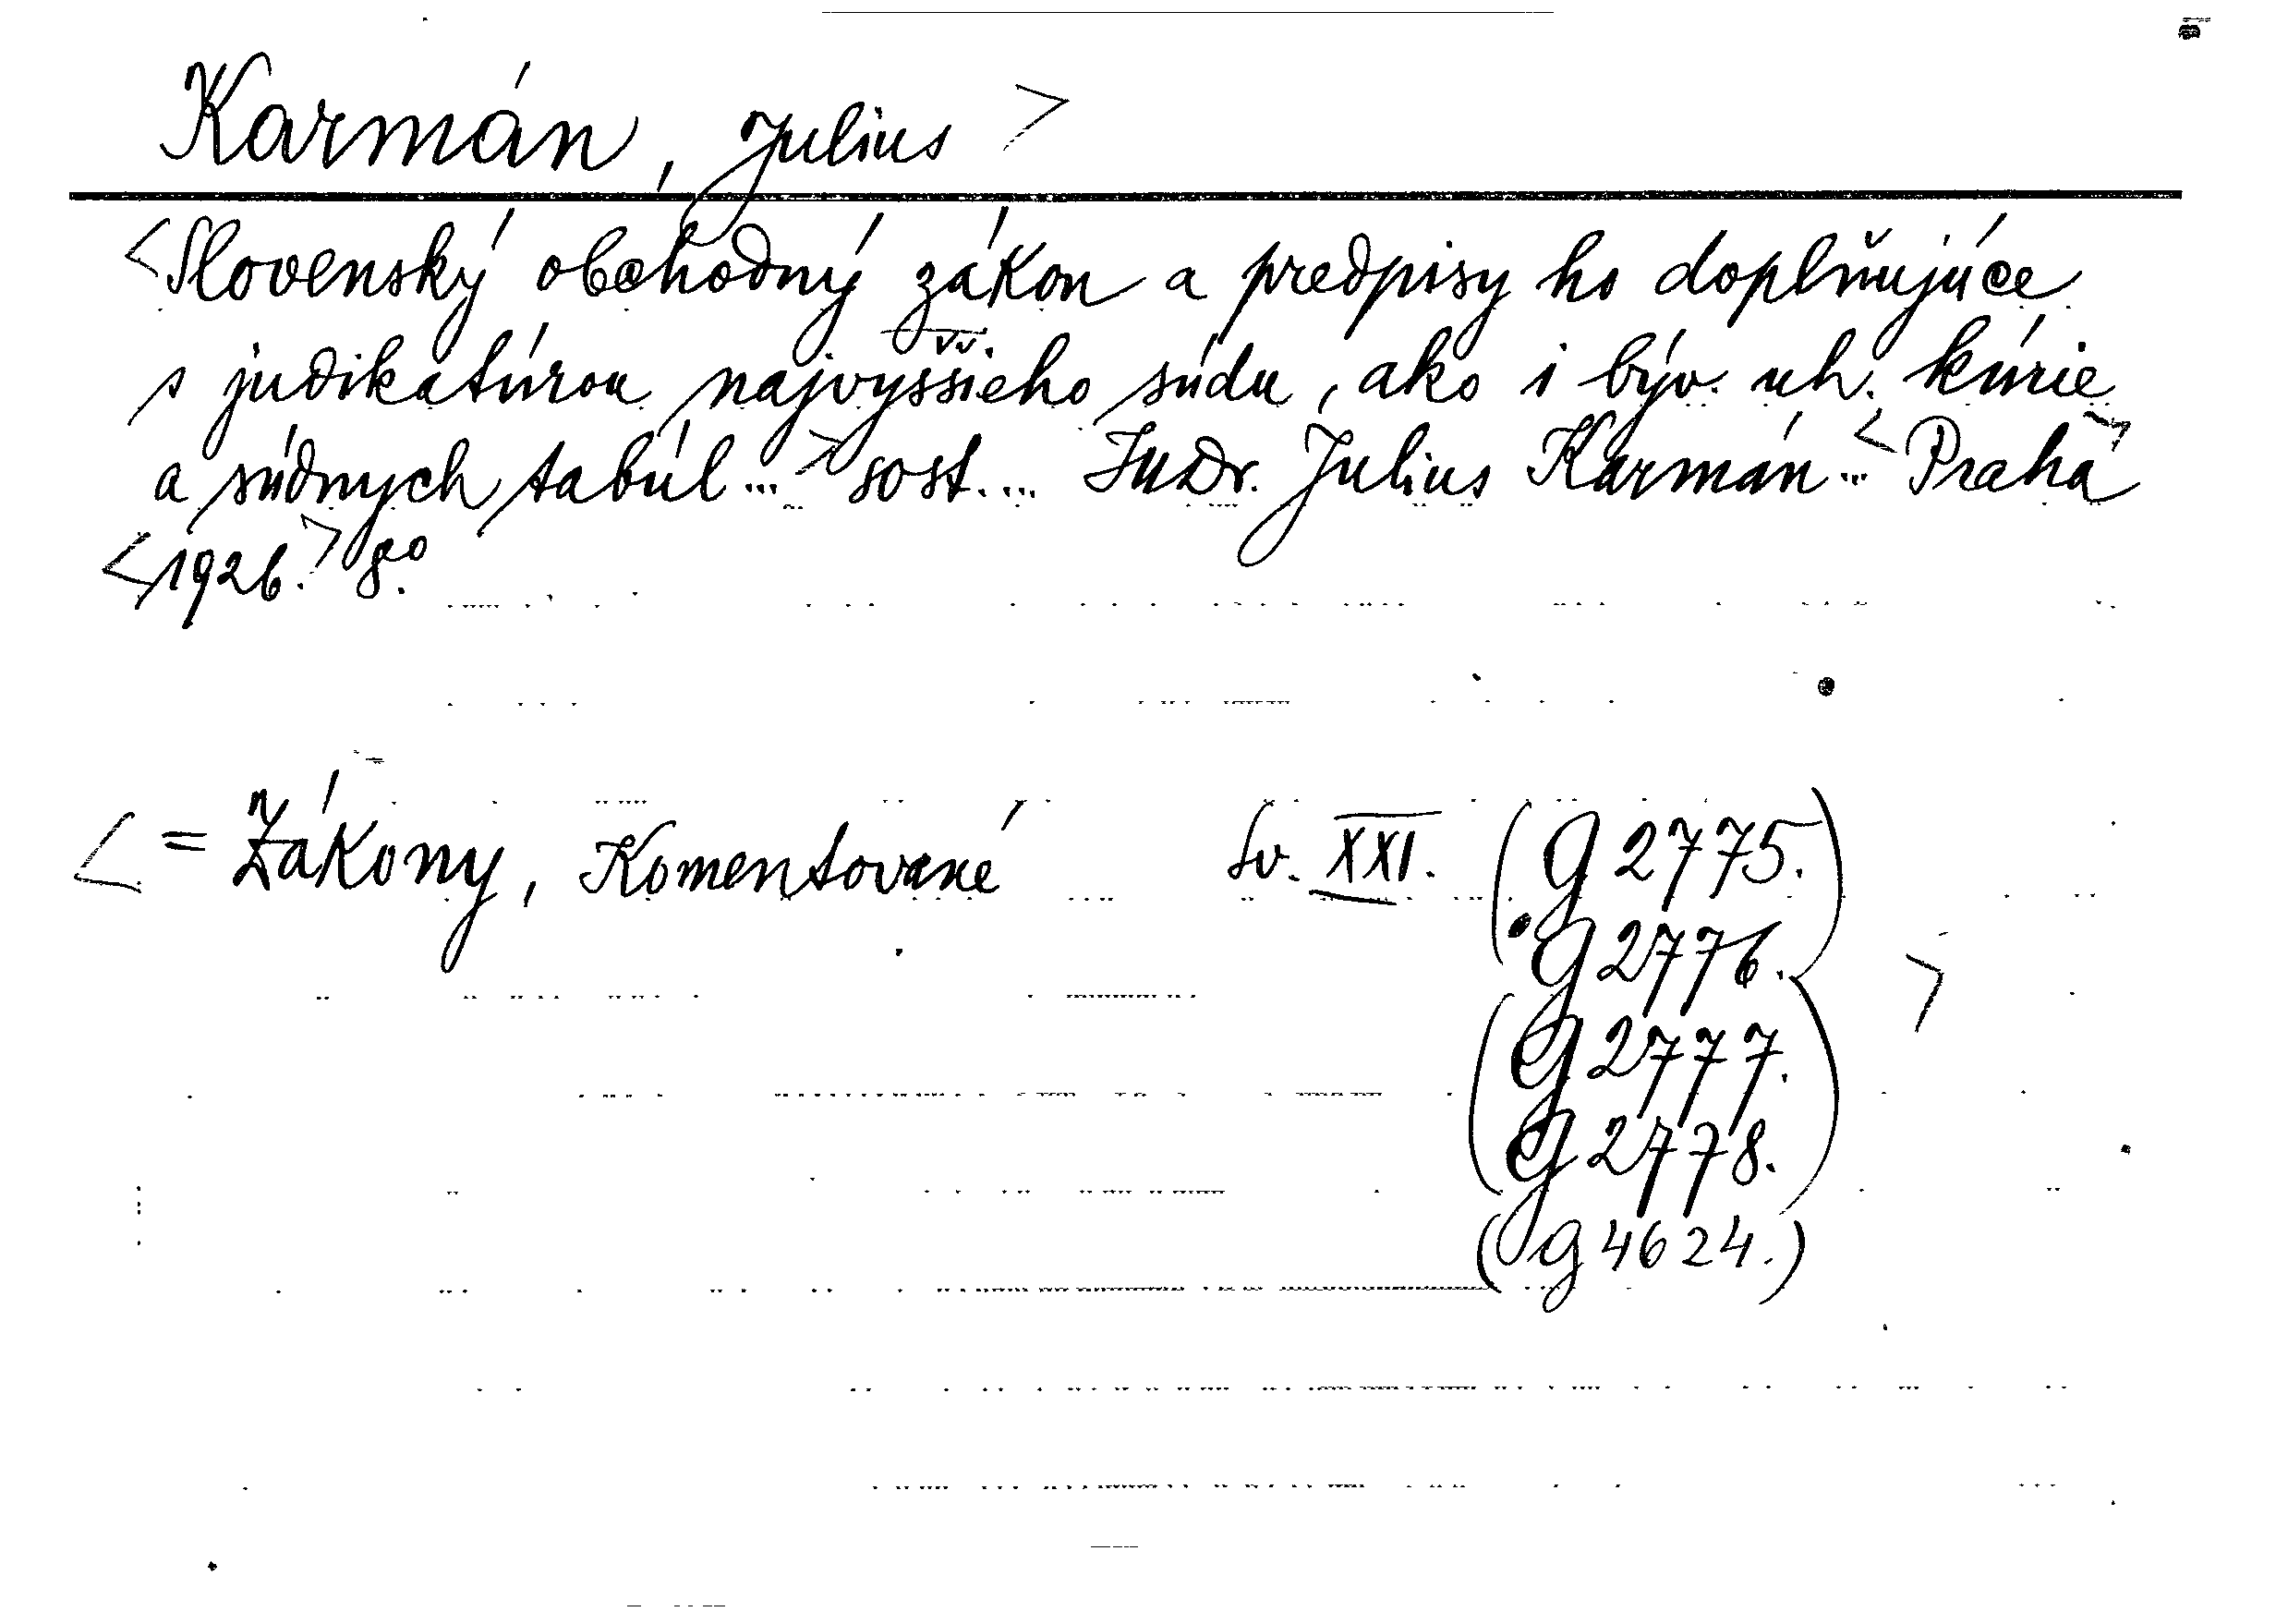 Karmán, Julius >
<Slovenský obchodný zákon a predpisy ho doplňujúce
s judikatúrou najvyššieho súdu, ako i býv. uh. kúrie
a súdnych tabúl ...> sost. ... JUDr. Július Karmán ... <Praha>
<1926.> 8°.
< = Zákony, Komentované Sv. XXI. (g 2775.)
g 2776. >
(g 2777.
g 2778.)
(g 4624.)